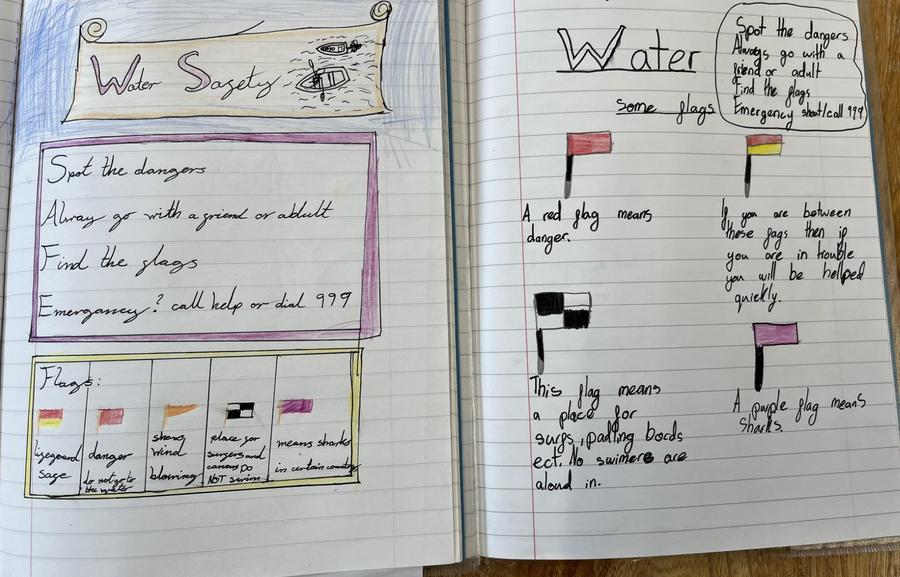 Water Safety
Spot the dangers
Alway go with a friend or abdult
Find the flags
Emergancy? call help or dial 999
Flags:
lifeguard
safe
danger
do not go to
the water
strong
wind
blowing
place for
surfers and
canous Do
NOT swim
means sharks
in certain country
Water
Spot the dangers
Always go with a
friend or adult
Find the flags
Emergency shout/call 999
some flags
A red flag means
danger.
If you are between
these fags then if
you are in trouble
you will be hellped
quickly.
This flag means
a place for
surfs, padling bords
ect. No swimers are
aloud in.
A purple flag means
sharks.